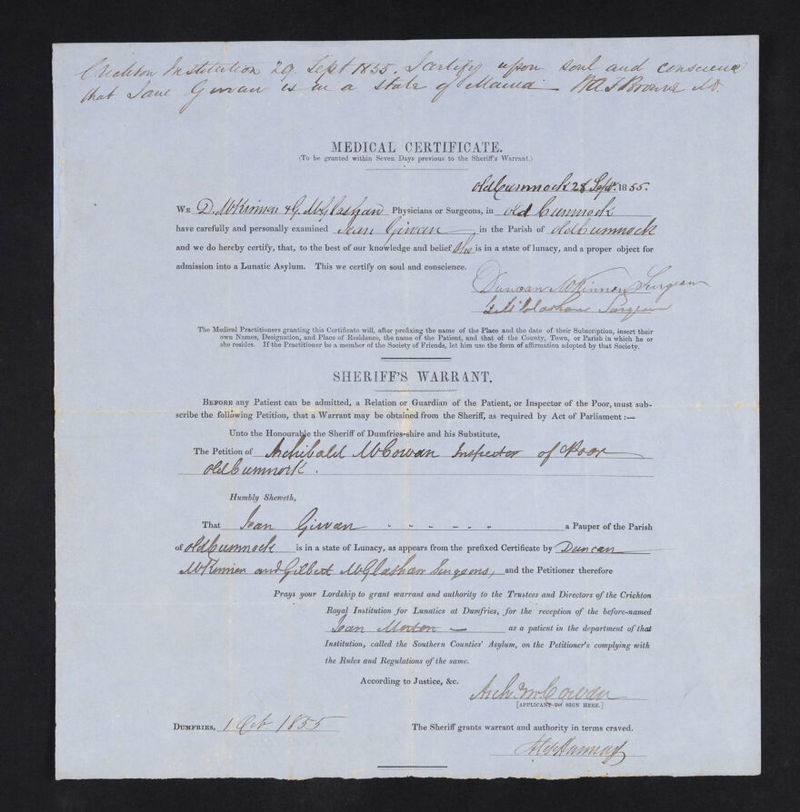 Crichton Institution 29 Sept 1855. I certify upon soul and conscience
that Jane Girvan is in a state of Mania WAF Browne MD.
MEDICAL CERTIFICATE.
(To be granted within Seven Days previous to the Sheriff's Warrant.)
Old Cumnock 28 Sept. 1855.
We D. McKinnen & G. McGlashan Physicians or Surgeons, in Old Cumnock
have carefully and personally examined Jean Girvan in the Parish of Old Cumnock
and we do hereby certify, that, to the best of our knowledge and belief She is in a state of lunacy, and a proper object for
admission into a Lunatic Asylum. This we certify on soul and conscience.
Duncan McKinnen Surgeon
G. McGlashan Surgeon
The Medical Practitioners granting this Certificate will, after prefixing the name of the Place and the date of their Subscription, insert their
own Names, Designation, and Place of Residence, the name of the Patient, and that of the County, Town, or Parish in which he or
she resides. If the Practitioner be a member of the Society of Friends, let him use the form of affirmation adopted by that Society.
SHERIFF'S WARRANT.
Before any Patient can be admitted, a Relation or Guardian of the Patient, or Inspector of the Poor, must sub-
scribe the following Petition, that a Warrant may be obtained from the Sheriff, as required by Act of Parliament:—
Unto the Honourable the Sheriff of Dumfries-shire and his Substitute,
The Petition of Archibald McCowan Inspector of Poor
Old Cumnock.
Humbly Sheweth,
That Jean Girvan " " " " " " a Pauper of the Parish
of Old Cumnock is in a state of Lunacy, as appears from the prefixed Certificate by Duncan
McKinnen and Gilbert McGlashan Surgeons, and the Petitioner therefore
Prays your Lordship to grant warrant and authority to the Trustees and Directors of the Crichton
Royal Institution for Lunatics at Dumfries, for the reception of the before-named
Jean Morton — as a patient in the department of that
Institution, called the Southern Counties' Asylum, on the Petitioner's complying with
the Rules and Regulations of the same.
According to Justice, &c.
Arch. McCowan
[APPLICANT TO SIGN HERE.]
Dumfries, 1 Oct 1855 The Sheriff grants warrant and authority in terms craved.